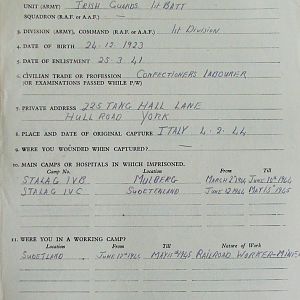 UNIT (ARMY) IRISH GUARDS 1st BATT
SQUADRON (R.A.F. or A.A.F.)
3. DIVISION (ARMY), COMMAND (R.A.F. or A.A.F.) 1st DIVISION
4. DATE OF BIRTH 24.12.1923
5. DATE OF ENLISTMENT 25.3.41
6. CIVILIAN TRADE OR PROFESSION CONFECTIONERS LABOURER
(OR EXAMINATIONS PASSED WHILE P/W)
7. PRIVATE ADDRESS 225 TANG HALL LANE
HULL ROAD YORK
8. PLACE AND DATE OF ORIGINAL CAPTURE ITALY 4.2.44
9. WERE YOU WOUNDED WHEN CAPTURED?
10. MAIN CAMPS OR HOSPITALS IN WHICH IMPRISONED.
Camp No. Location From Till
STALAG IVB MULBERG MARCH 2nd 1944 JUNE 10th 1944
STALAG IVC SUDETENLAND JUNE 12 1944 MAY 15 1945
11. WERE YOU IN A WORKING CAMP?
Location From Till Nature of Work
SUDETLAND JUNE 1944 MAY 1945 RAILROAD WORKER-MINER